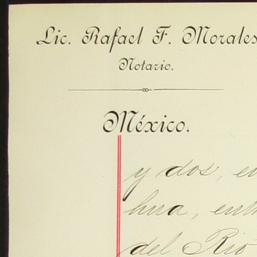 Lic. Rafael F. Morales
Notario.
México.
y dos, en
hura, entr
del Rio